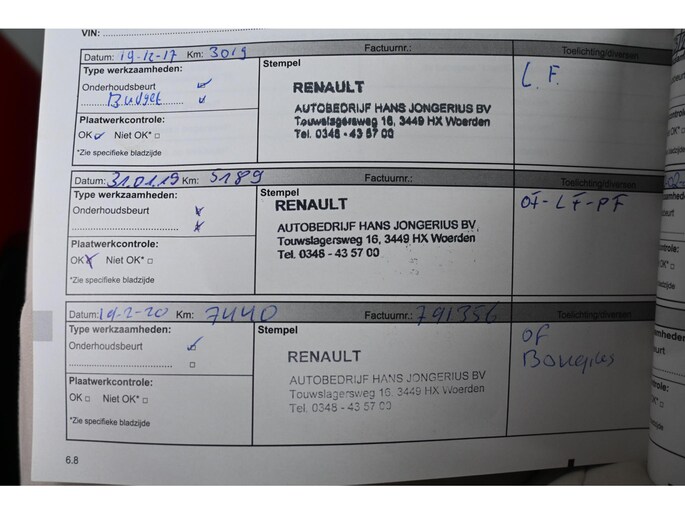 VIN:
Datum: 19-12-17 Km: 3019 Factuurnr.: Toelichting/diversen
Type werkzaamheden: Stempel
Onderhoudsbeurt
Budget
Plaatwerkcontrole:
OK Niet OK*
*Zie specifieke bladzijde
RENAULT
AUTOBEDRIJF HANS JONGERIUS BV
Touwslagersweg 16, 3449 HX Woerden
Tel. 0348 - 43 57 00
L.F.
Datum: 31.01.19 Km: 5189 Factuurnr.: Toelichting/diversen
Type werkzaamheden: Stempel
Onderhoudsbeurt
Plaatwerkcontrole:
OK Niet OK*
*Zie specifieke bladzijde
RENAULT
AUTOBEDRIJF HANS JONGERIUS BV
Touwslagersweg 16, 3449 HX Woerden
Tel. 0348 - 43 57 00
OF-LF-PF
Datum: 19-2-20 Km: 7440 Factuurnr.: 791356 Toelichting/diversen
Type werkzaamheden: Stempel
Onderhoudsbeurt
Plaatwerkcontrole:
OK Niet OK*
*Zie specifieke bladzijde
RENAULT
AUTOBEDRIJF HANS JONGERIUS BV
Touwslagersweg 16, 3449 HX Woerden
Tel. 0348 - 43 57 00
OF
6.8